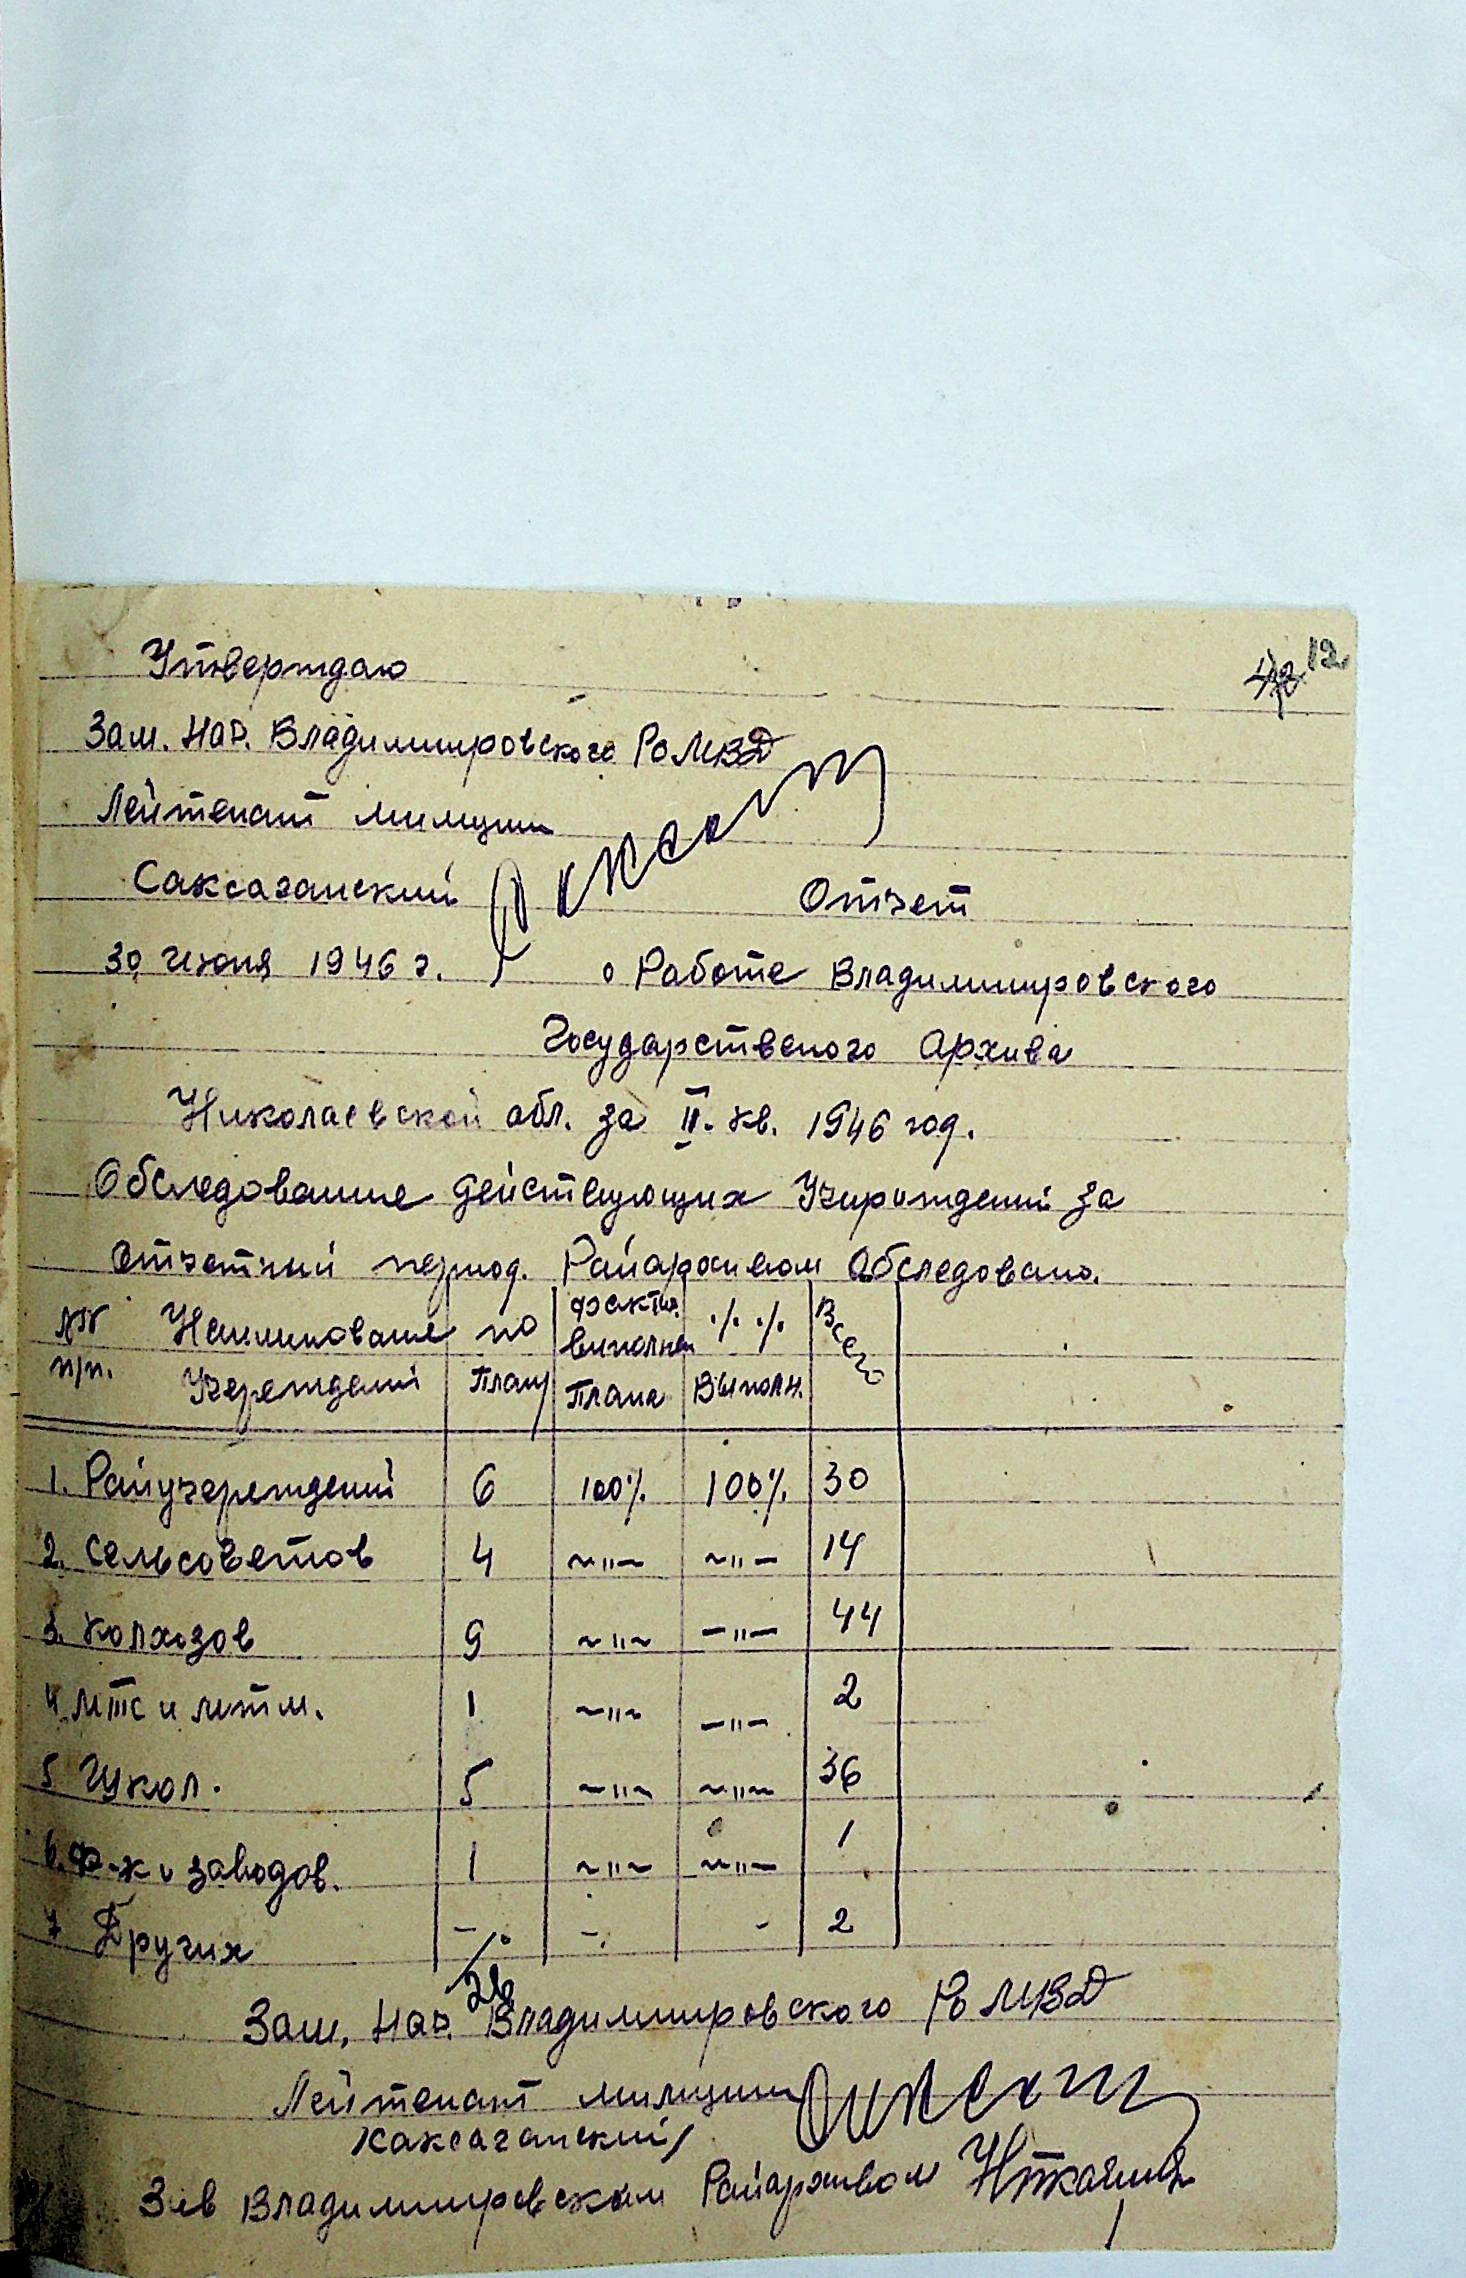 12
Утверждаю
Зам. Нач. Владимировского РОМВД
Лейтенант милиции
Саксаганский
30 Июня 1946 г.
Отчет
о Работе Владимировского
Государственого Архива
Николаевской обл. за II. кв. 1946 год.
Обследование действующих Учирождений за
отчетный период. Райархивом Обследовано.
№№ Наименование по фактич. % % Всего
п/п. Учереждений Плану выполнен Плана Выполн.
1. Райучереждений 6 100% 100% 30
2. Сельсоветов 4 -"- -"- 14
3. Колхозов 9 -"- -"- 44
4. МТС и мтм. 1 -"- -"- 2
5 Школ. 5 -"- -"- 36
6. Ф-к и заводов. 1 -"- -"- 1
7 Других - - - 2
26
Зам. Нач. Владимировского РОМВД
Лейтенант милиции
/Саксаганский/
Зав Владимировским Райархивом